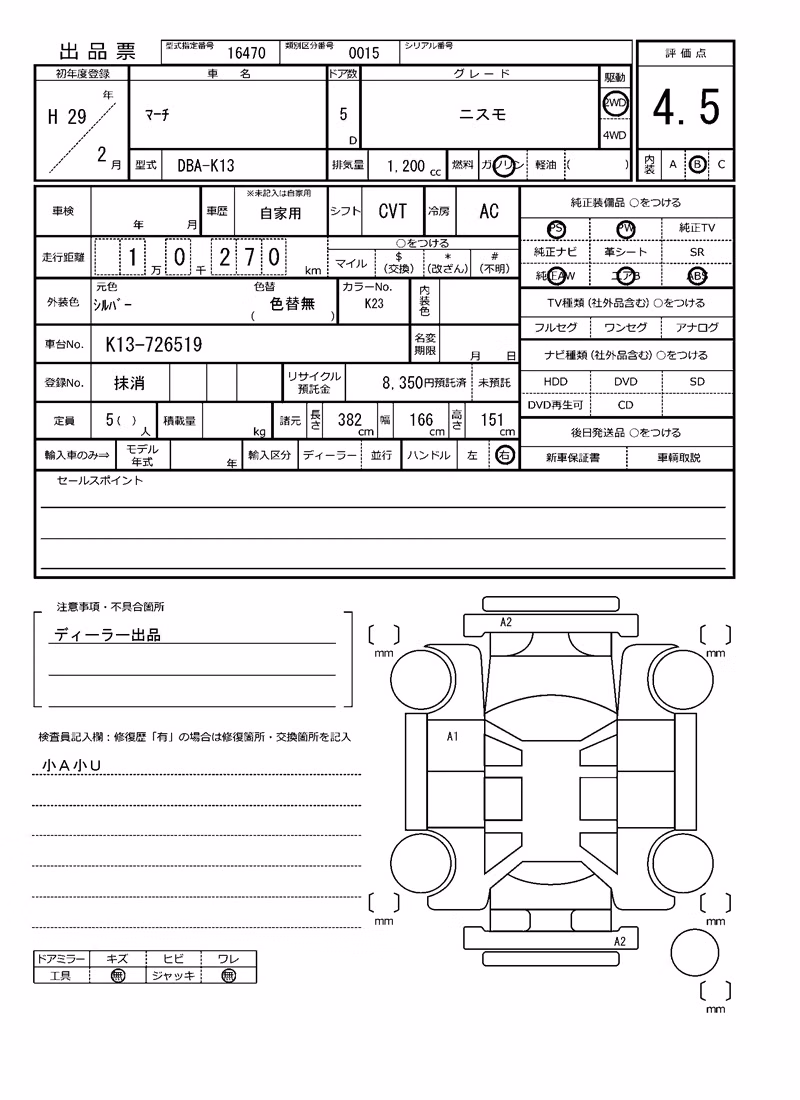 出品票 型式指定番号 16470 類別区分番号 0015 シリアル番号
評価点
初年度登録 車名 ドア数 グレード 駆動
H 29 年 2 月 マーチ 5 D ニスモ 2WD 4WD
4.5
型式 DBA-K13 排気量 1,200 cc 燃料 ガソリン 軽油 ( )
内装 A B C
車検 年 月 車歴 ※未記入は自家用 自家用 シフト CVT 冷房 AC
純正装備品 ○をつける
PS PW 純正TV
走行距離 1 万 0 千 2 7 0 km ○をつける
マイル $ (交換) * (改ざん) # (不明)
純正ナビ 革シート SR
純正AW エアB ABS
外装色 元色 シルバー 色替 ( 色替無 ) カラーNo. K23 内装色
TV種類 (社外品含む) ○をつける
フルセグ ワンセグ アナログ
車台No. K13-726519 名変期限 月 日
ナビ種類 (社外品含む) ○をつける
登録No. 抹消 リサイクル預託金 8,350円預託済 未預託
HDD DVD SD
DVD再生可 CD
定員 5 ( ) 人 積載量 kg 諸元 長さ 382 cm 幅 166 cm 高さ 151 cm
後日発送品 ○をつける
輸入車のみ⇒ モデル年式 年 輸入区分 ディーラー 並行 ハンドル 左 右
新車保証書 車輌取説
セールスポイント
注意事項・不具合箇所
ディーラー出品
A2
mm mm
検査員記入欄：修復歴「有」の場合は修復箇所・交換箇所を記入
A1
小A小U
mm mm
A2
ドアミラー キズ ヒビ ワレ
工具 無 ジャッキ 無
mm